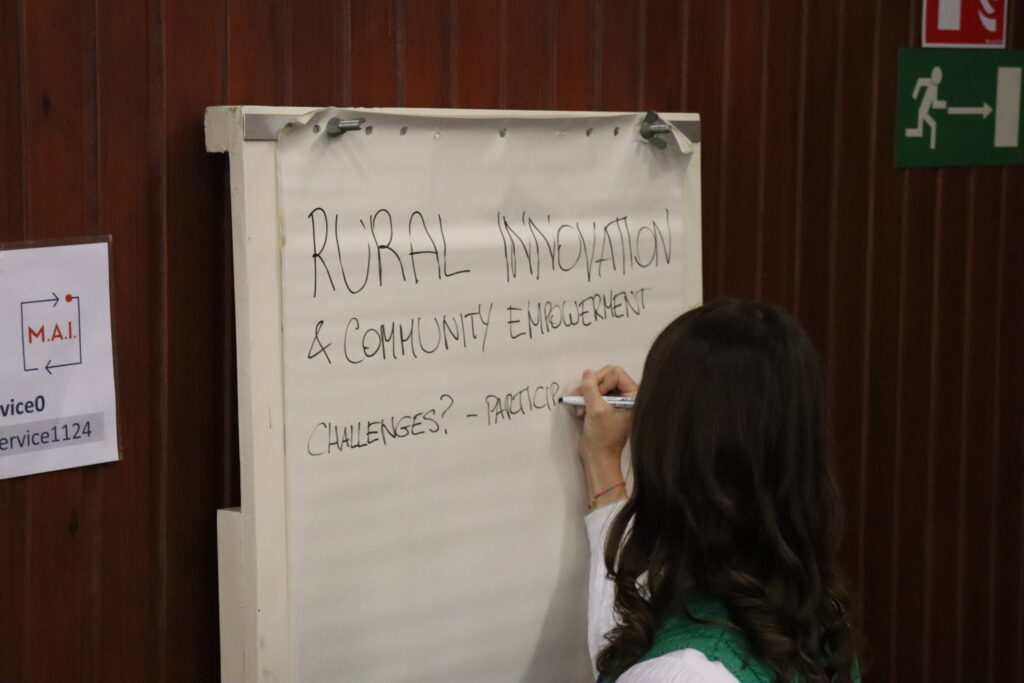 RURAL INNOVATION
& COMMUNITY EMPOWERMENT
CHALLENGES? - PARTICIP
M.A.I.
vice0
ervice1124